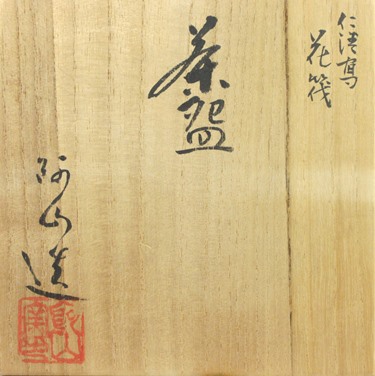 仁清写
花筏
茶盌
阿山造